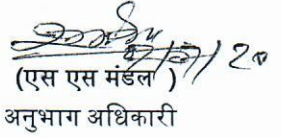 (एस एस मंडल )
अनुभाग अधिकारी